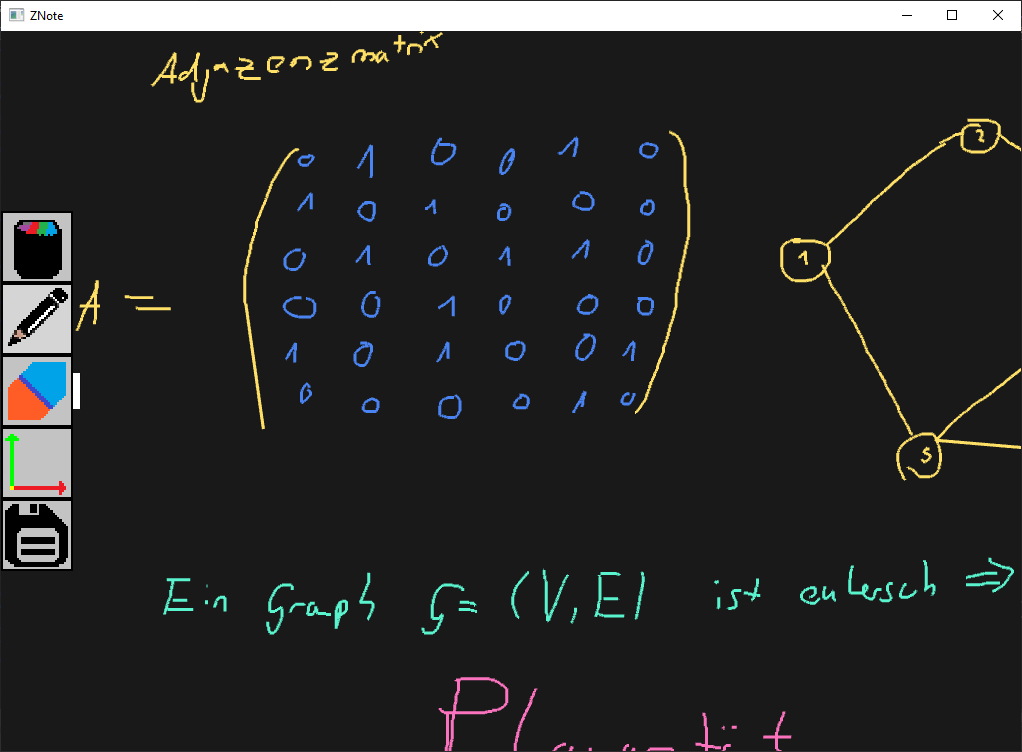 ZNote
Adjazenzmatrix
0 1 0 0 1 0
1 0 1 0 0 0
0 1 0 1 1 0
A = 0 0 1 0 0 0
1 0 1 0 0 1
0 0 0 0 1 0
2
1
5
Ein Graph G = (V, E) ist eulersch ⇒